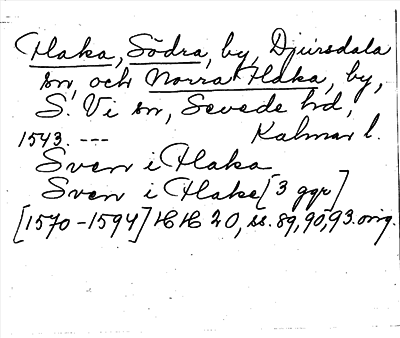 Flaka, Södra, by, Djursdala
sn, och Norra Flaka, by,
S. Vi sn, Sevede hd,
1543. --- Kalmar l.
Sven i Flaka
Sven i Flake [3 ggr]
[1570-1594] HH 20, ss. 89, 90, 93. orig.